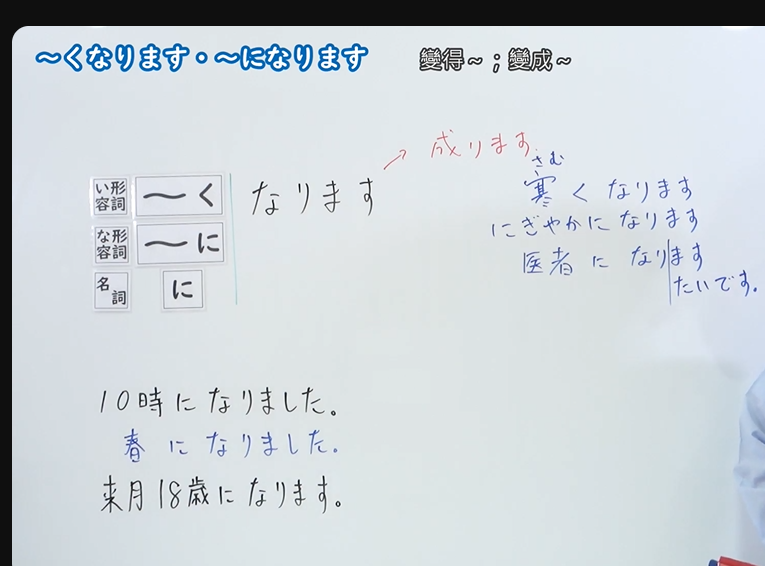 ～くなります・～になります
變得～；變成～
い形容詞 ～く なります
な形容詞 ～に
名詞 に
成ります
さむ
寒くなります
にぎやかになります
医者になります
たいです。
10時になりました。
春になりました。
来月18歳になります。